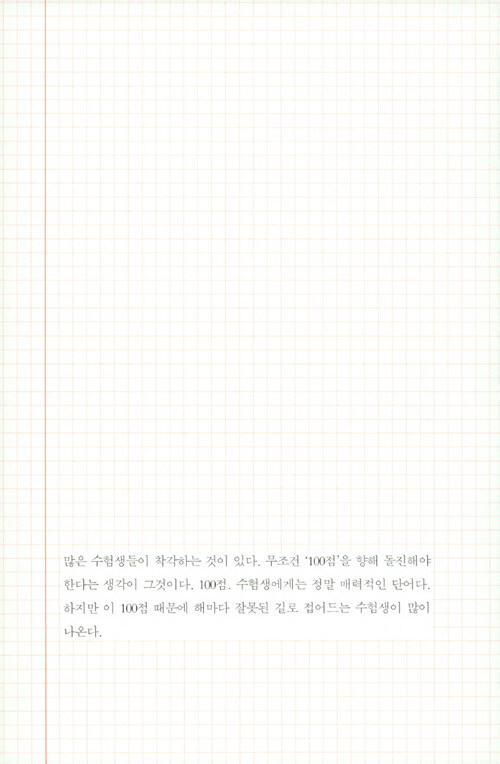 많은 수험생들이 착각하는 것이 있다. 무조건 ‘100점’을 향해 돌진해야
한다는 생각이 그것이다. 100점. 수험생에게는 정말 매력적인 단어다.
하지만 이 100점 때문에 해마다 잘못된 길로 접어드는 수험생이 많이
나온다.